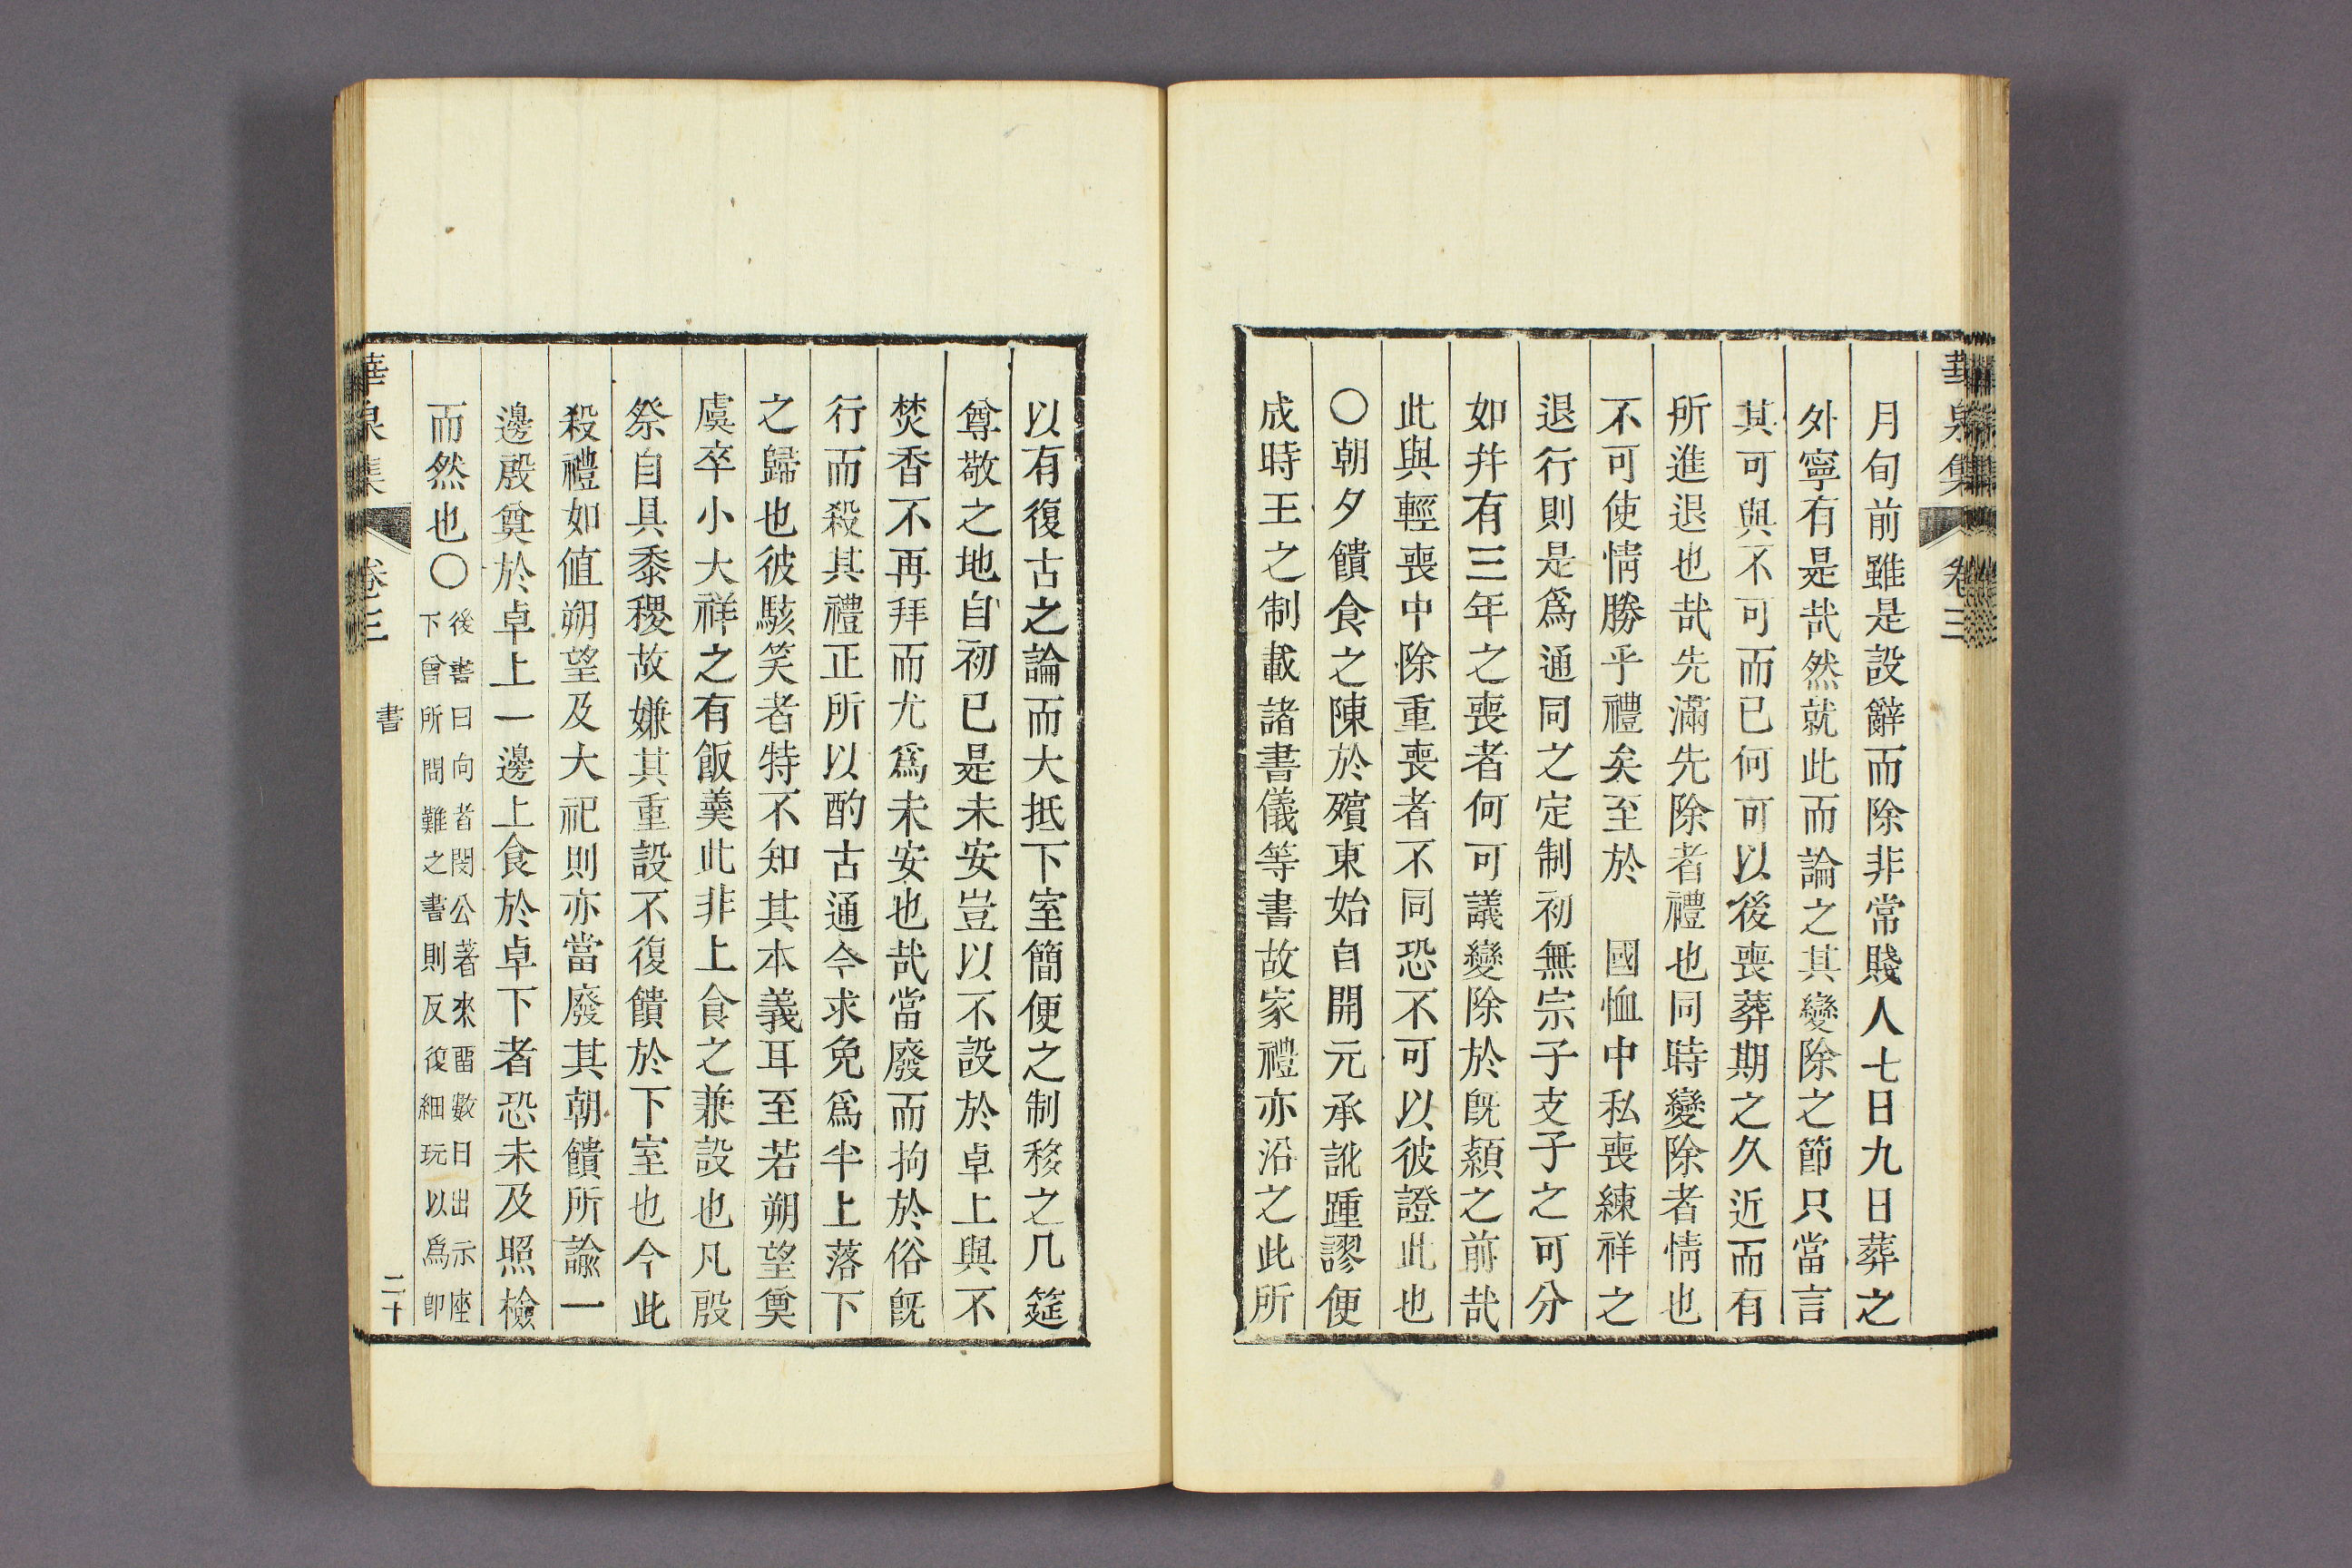 華泉集 卷三
月旬前雖是設辭而除非常賤人七日九日葬之
外寧有是哉然就此而論之其變除之節只當言
其可與不可而已何可以後喪葬期之久近而有
所進退也哉先滿先除者禮也同時變除者情也
不可使情勝乎禮矣至於　國恤中私喪練祥之
退行則是爲通同之定制初無宗子支子之可分
如幷有三年之喪者何可議變除於旣顈之前哉
此與輕喪中除重喪者不同恐不可以彼證此也
○朝夕饋食之陳於殯東始自開元承訛踵謬便
成時王之制載諸書儀等書故家禮亦沿之此所
以有復古之論而大抵下室簡便之制移之几筵
尊敬之地自初已是未安豈以不設於卓上與不
焚香不再拜而尤爲未安也哉當廢而拘於俗旣
行而殺其禮正所以酌古通今求免爲半上落下
之歸也彼駭笑者特不知其本義耳至若朔望奠
虞卒小大祥之有飯羹此非上食之兼設也凡殷
祭自具黍稷故嫌其重設不復饋於下室也今此
殺禮如值朔望及大祀則亦當廢其朝饋所諭一
邊殷奠於卓上一邊上食於卓下者恐未及照檢
而然也○後書曰向者閔公著來畱數日出示座
下曾所問難之書則反復細玩以爲卽
華泉集 卷三 書 二十